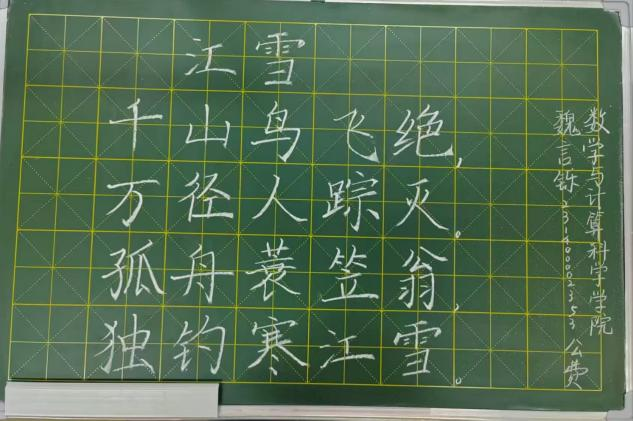 江雪
千山鸟飞绝,
万径人踪灭。
孤舟蓑笠翁,
独钓寒江雪。
数学与计算科学学院
魏言铄 231400002353 公费